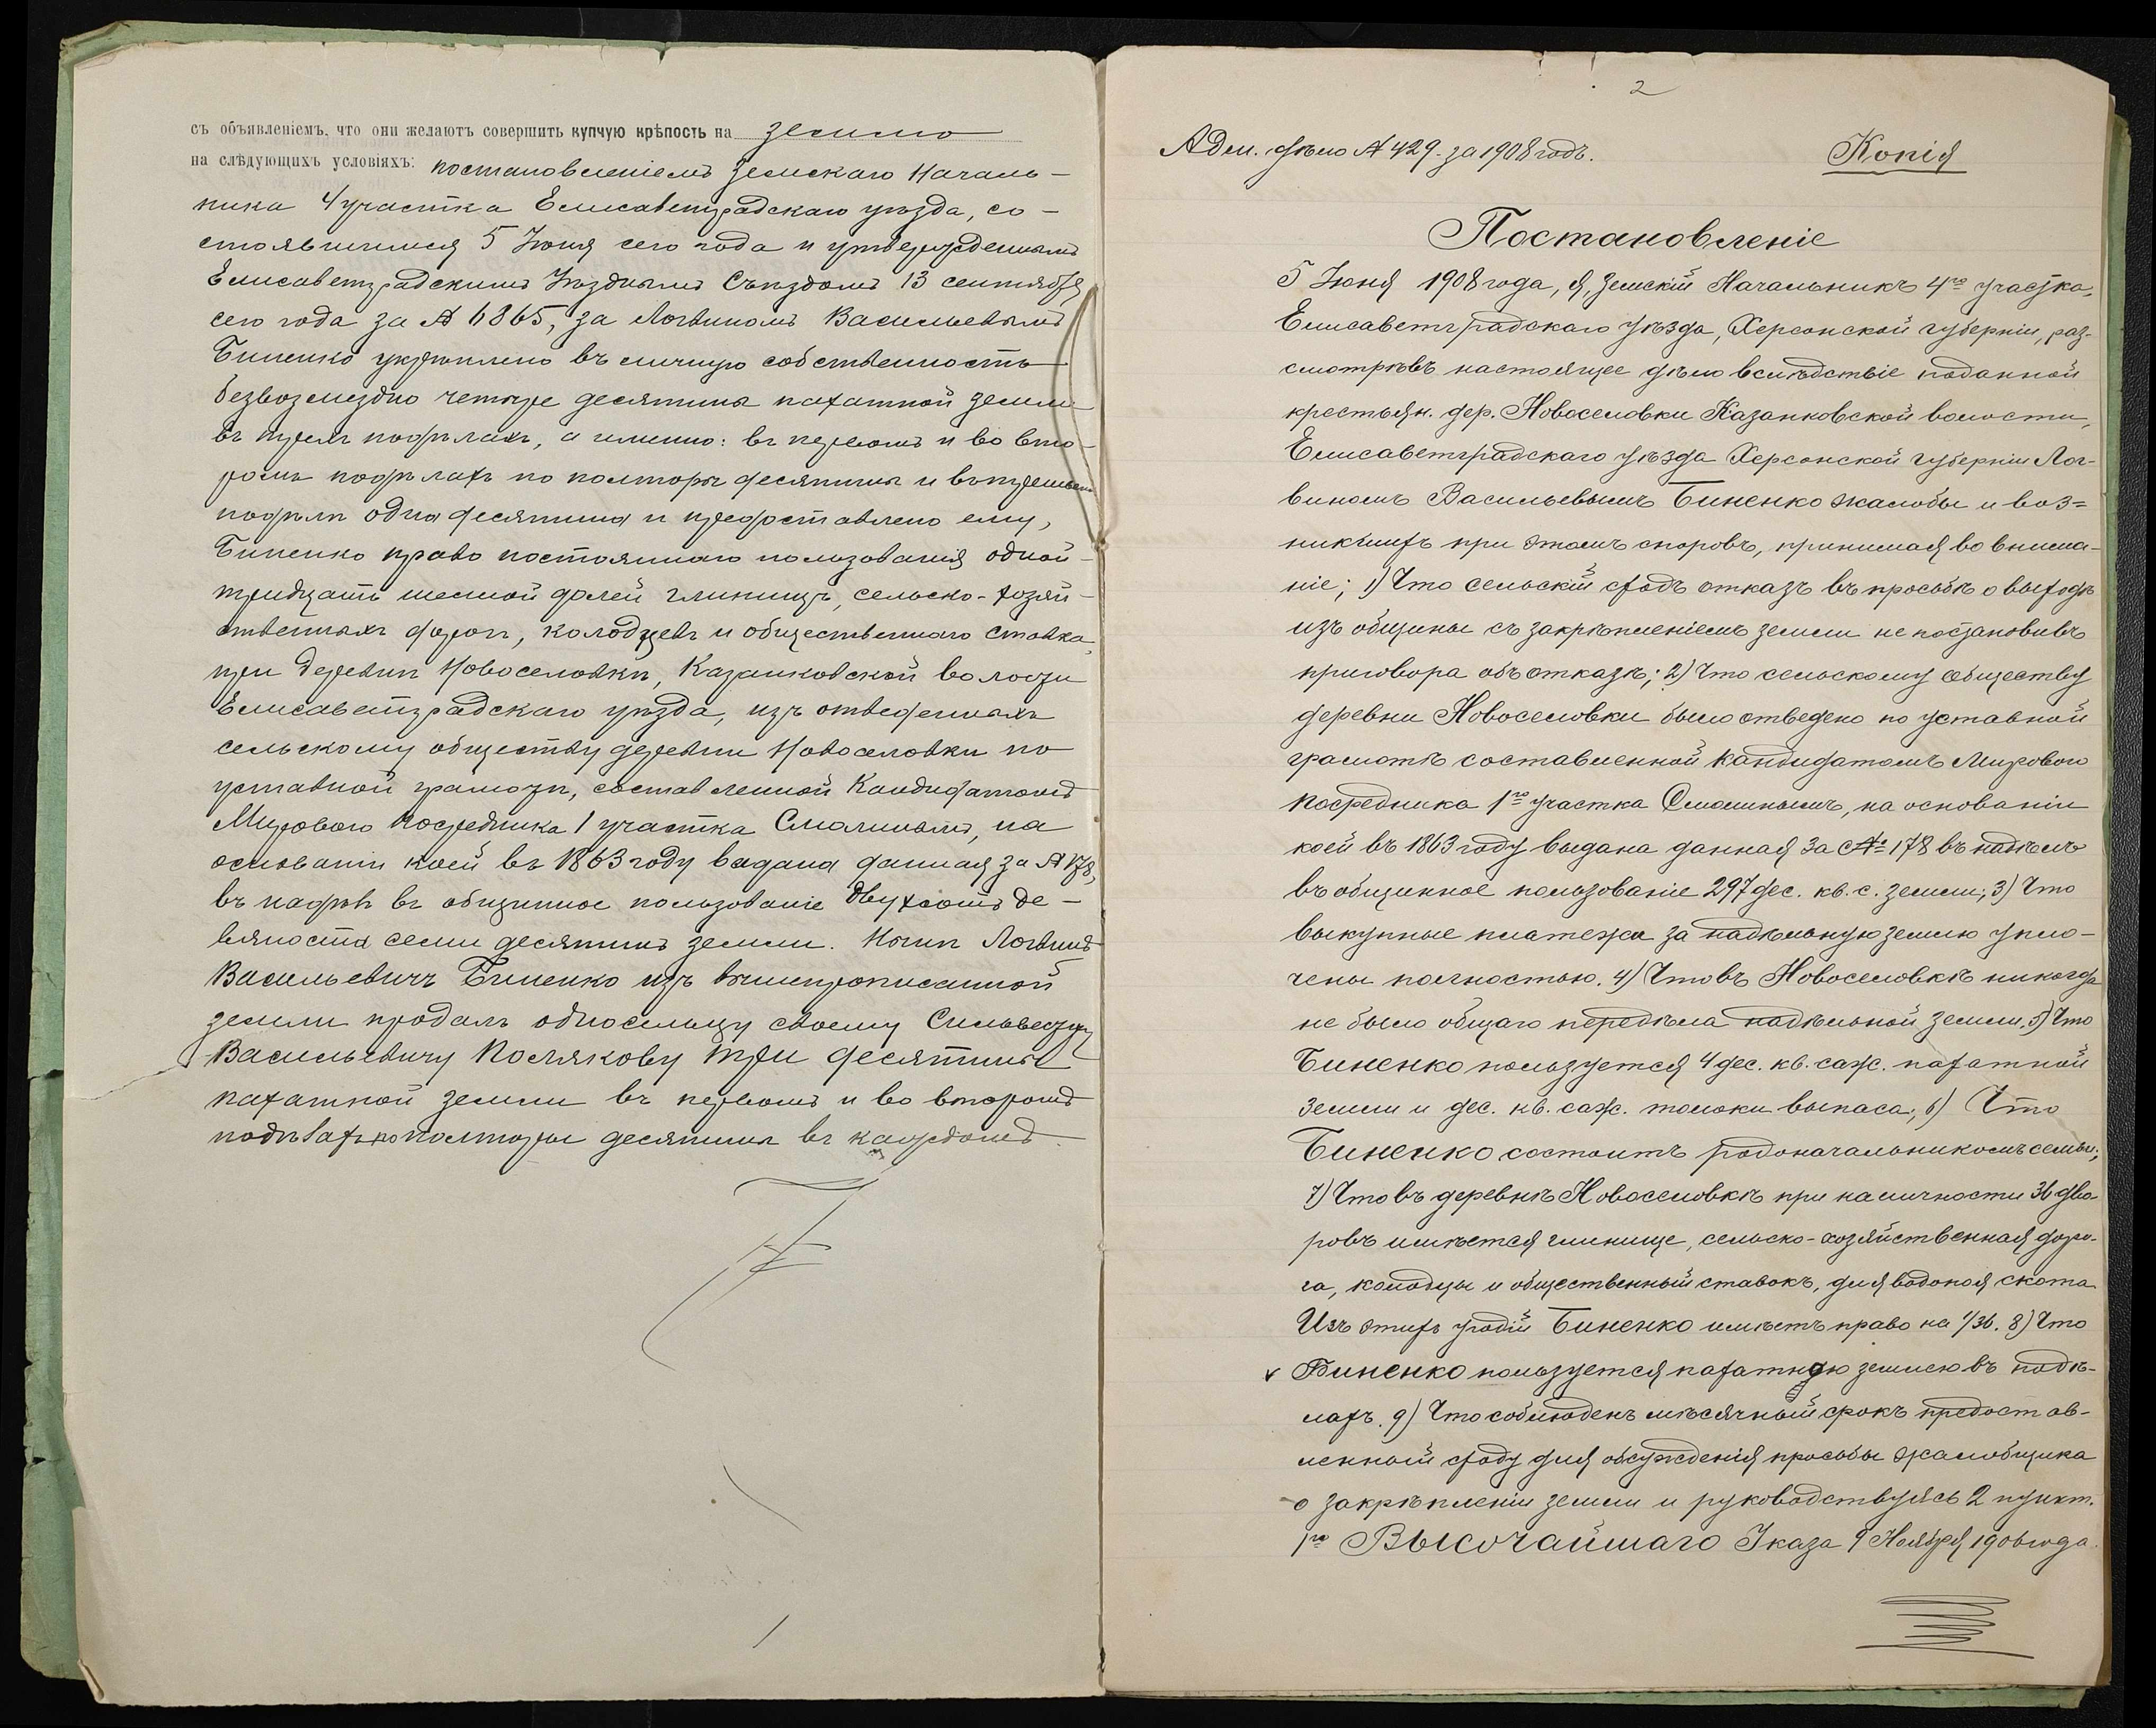 съ объявленіемъ, что они желаютъ совершить купчую крѣпость на землю
на слѣдующихъ условіяхъ: постановленіемъ Земскаго Началь-
ника 4 участка Елисаветградскаго уѣзда, со-
стоявшимся 5 Іюня сего года и утвержденнымъ
Елисаветградскимъ Уѣзднымъ Съѣздомъ 13 сентября
сего года за № 6865, за Логвиномъ Васильевымъ
Биненко укрѣплено въ личную собственность
безвозмездно четыре десятины пахатной земли
въ трехъ подѣлахъ, а именно: въ первомъ и во вто-
ромъ подѣлахъ по полторы десятины и въ третьемъ
подѣлѣ одна десятина и предоставлено ему,
Биненко право постояннаго пользованія одной
тридцать шестой долей глинищъ, сельско-хозяй-
ственныхъ дорогъ, колодцевъ и общественнаго ставка,
при деревнѣ Новоселовкѣ, Казанковской волости
Елисаветградскаго уѣзда, изъ отведенныхъ
сельскому обществу деревни Новоселовки по
уставной грамотѣ, составленной Кандидатомъ
Мирового Посредника 1 участка Смолинымъ, на
основаніи коей въ 1863 году выдана данная за № 178,
въ надѣлъ въ общинное пользованіе двухсотъ де-
вяноста семи десятинъ земли. Нынѣ Логвинъ
Васильевичъ Биненко изъ вышепрописанной
земли продалъ односельцу своему Сильвестру
Васильевичу Полякову три десятины
пахатной земли въ первомъ и во второмъ
подѣлахъ по полторы десятины въ каждомъ.
2
Адм. дѣло № 429. за 1908 годъ.
Копія
Постановленіе
5 Іюня 1908 года, я, Земскій Начальникъ 4го участка,
Елисаветградскаго уѣзда, Херсонской губерніи, раз-
смотрѣвъ настоящее дѣло вслѣдствіе поданной
крестьян. дер. Новоселовки Казанковской волости,
Елисаветградскаго уѣзда Херсонской губерніи Лог-
виномъ Васильевымъ Биненко жалобы и воз=
никшихъ при этомъ споровъ, принимая во внима-
ніе; 1) Что сельскій сходъ отказъ въ просьбѣ о выходѣ
изъ общины съ закрѣпленіемъ земли не постановивъ
приговора объ отказѣ; 2) Что сельскому обществу
деревни Новоселовки было отведено по уставной
грамотѣ составленной Кандидатомъ Мирового
Посредника 1го участка Смолинымъ, на основаніи
коей въ 1863 году выдана данная за № 178 въ надѣлъ
въ общинное пользованіе 297 дес. кв. с. земли; 3) Что
выкупные платежи за надѣльную землю упло-
чены полностью. 4) Что въ Новоселовкѣ никогда
не было общаго передѣла надѣльной земли. 5) Что
Биненко пользуется 4 дес. кв. саж. пахатной
земли и дес. кв. саж. толоки выпаса; 6) Что
Биненко состоитъ родоначальникомъ семьи;
7) Что въ деревнѣ Новоселовкѣ при наличности 36 дво-
ровъ имѣется глинище, сельско-хозяйственная доро-
га, колодцы и общественный ставокъ, для водопоя скота
Изъ этихъ угодій Биненко имѣетъ право на 1/36. 8) Что
Биненко пользуется пахатною землею въ подѣ-
лахъ. 9) Что соблюденъ мѣсячный срокъ предостав-
ленный сходу для обсужденія просьбы жалобщика
о закрѣпленіи земли и руководствуясь 2 пункт.
1го Высочайшаго Указа 9 Ноября 1906 года.